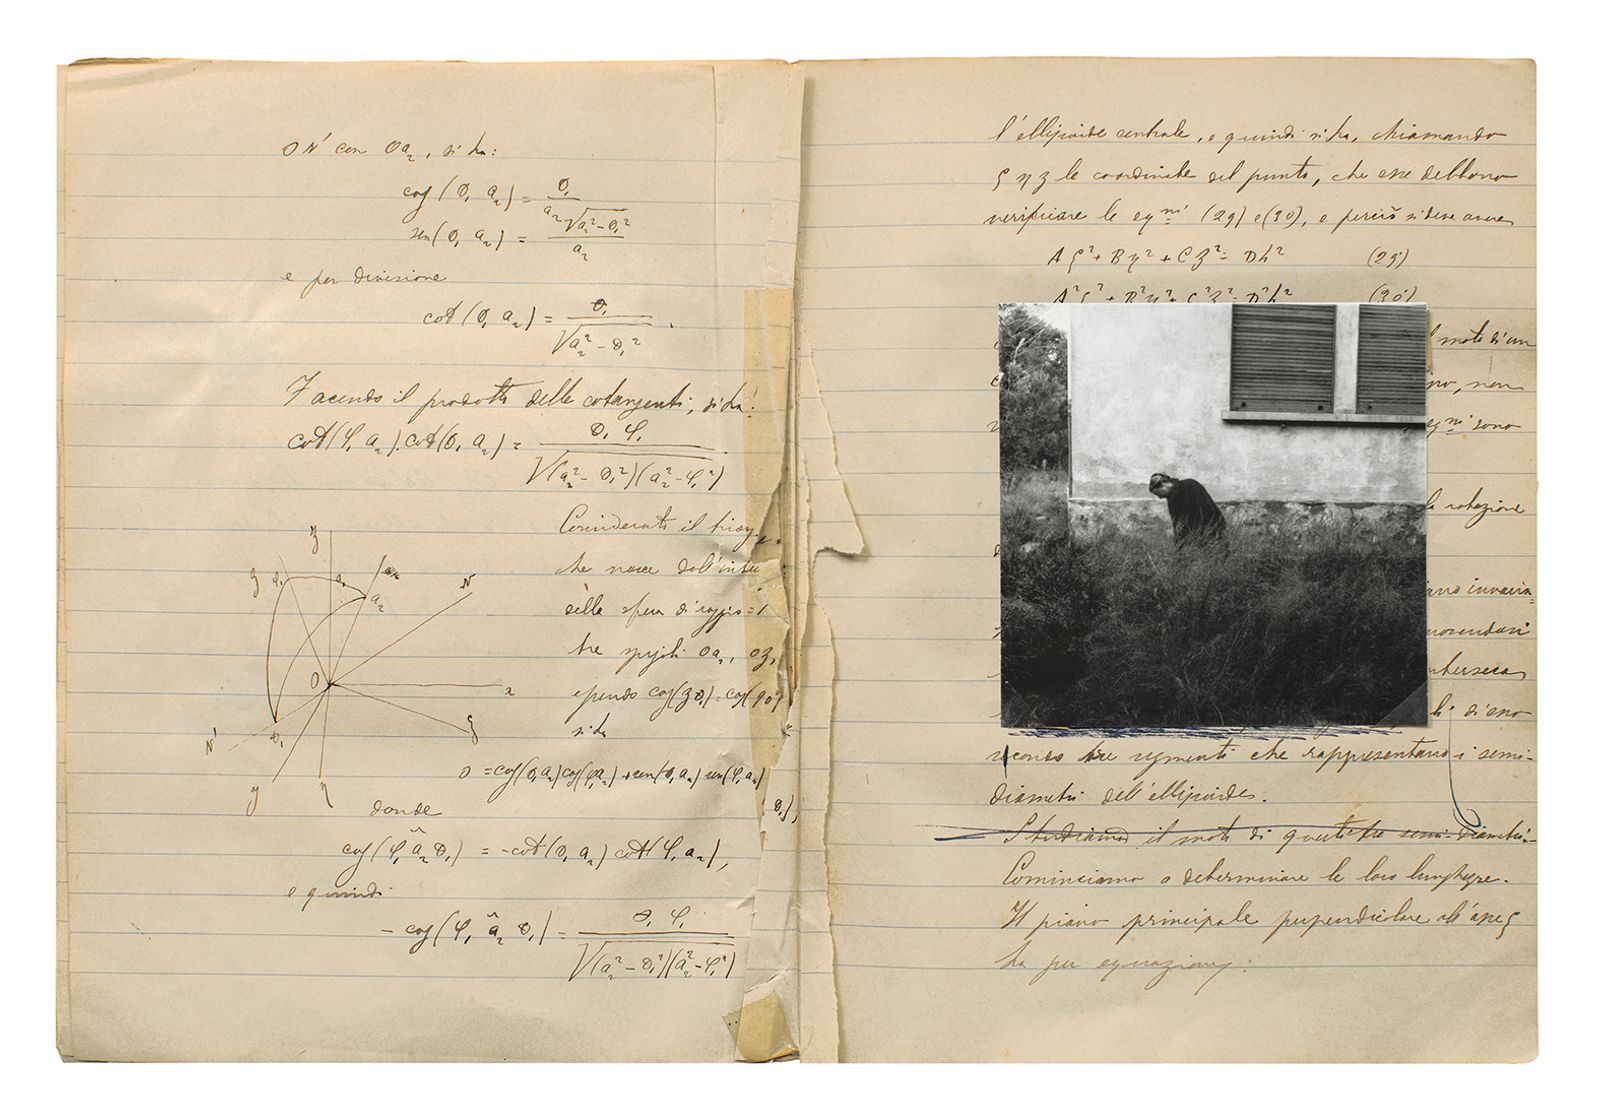 O N' con Oa₂, si ha:
cos(θ₁ a₂) = θ₁ / a₂
sen(θ₁ a₂) = √(a₂² - θ₁²) / a₂
e per divisione
cot(θ₁ a₂) = θ₁ / √(a₂² - θ₁²) .
Facendo il prodotto delle cotangenti, si ha:
cot(φ₁ a₂).cot(θ₁ a₂) = θ₁ φ₁ / √(a₂² - θ₁²)(a₂² - φ₁²)
Considerato il
che nasce dall'inte
della sfera di raggio = 1
tre spigoli Oa₂, Oz,
cos(zθ₁) = cos(90°
si ha
0 = cos(θ₁a₂)cos(φ₁a₂) + sen(θ₁a₂) sen(φ₁a₂)
donde
cos(φ₁ â₂ θ₁) = -cot(θ₁ a₂) cot(φ₁ a₂),
e quindi
- cos(φ₁ â₂ θ₁) = θ₁ φ₁ / √(a₂² - θ₁²)(a₂² - φ₁²)
z
ζ φ₁ a₂
a₂
N
O
x
ξ
N' θ₁
y η
l'ellissoide centrale, e quindi si ha, chiamando
ξ η ζ le coordinate del punto, che esse debbono
verificare le eq.ⁿⁱ (29) e (30), e perciò si deve avere
Aξ² + Bη² + Cζ² = Dh² (29')
A²ξ² + B²η² + C²ζ² = D²h² (30')
moto di un
no, non
eq.ⁿⁱ sono
la rotazione
ano invaria=
interseca
tre segmenti che rappresentano i semi-
diametri dell'ellissoide.
Studiamo il moto di queste tre semi-diametri.
Cominciamo a determinare le loro lunghezze.
Il piano principale perpendicolare all'asse ξ
ha per equazione: